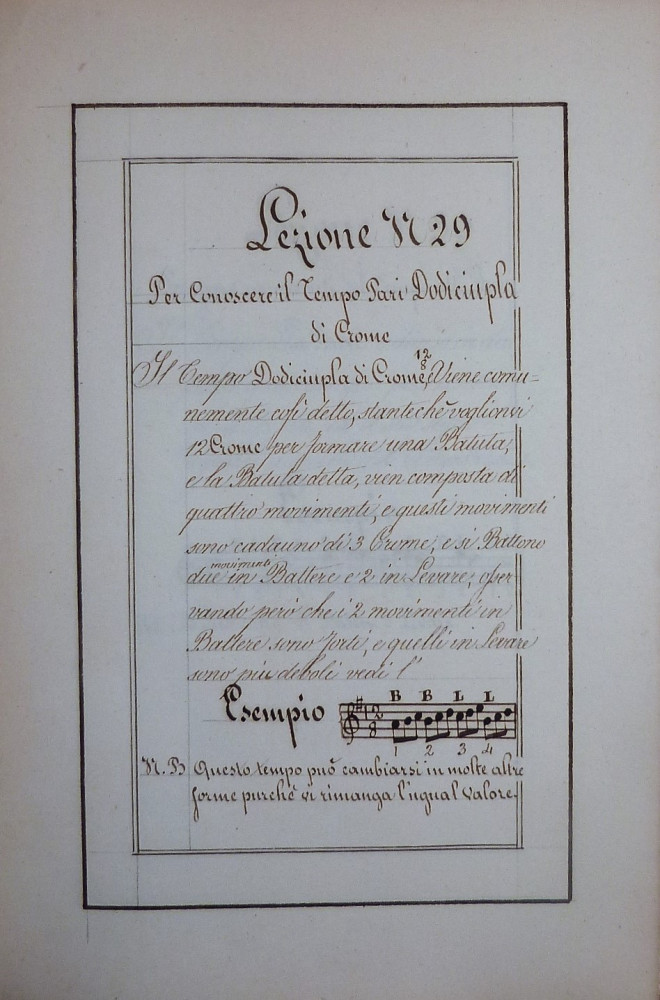 Lezione N 29
Per Conoscere il Tempo Pari Dodiciupla
di Crome
Il Tempo Dodiciupla di Crome 12/8 Viene comu=
nemente così detto, stante chè voglionvi
12 Crome per formare una Batuta,
e la Batuta detta, vien composta di
quattro movimenti, e questi movimenti
sono cadauno di 3 Crome, e si Battono
due movimenti in Battere e 2 in Levare, osser-
vando però che i 2 movimenti in
Battere sono forti, e quelli in Levare
sono più deboli vedi l'
B B L L
Esempio 12/8
1 2 3 4
N.B Questo tempo può cambiarsi in molte altre
forme purchè vi rimanga l'ugual valore.